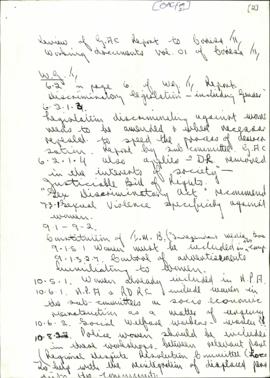 (2)
Review of G.A.C Report to Codesa II,
Working documents vol. 01 of Codesa II,
W.G. I,
6.2 in page 6 of WG I, Report
discriminatory legislation - including Gender
6.2.1.2
Legislation discriminating against women
needs to be amended & where necessary
repealed to speed the process of
- Report by sub committee G.A.C
6.2.1.4 also applies - DR removed
in the interests of society -
Justiciable Bill of Rights.
Sex Discriminatory Act, recommend
7.2.1 Sexual Violence specificity against
women.
9.1 - 9.2.
Constitution of
9.1.5.1 Women must be included in
9.1.3.27. Control of advertisements
humiliating to Women.
10.5.1. Women already included in N.P.A.
10.6.1. N.P.A &
the sub-committees on socio economic
reconstruction as a matter of urgency
10.6.2. Social Welfare workers
Police women should be included
in these workshops between relevant
Regional Dispute Resolution Committee
to help with the reintegration of displaced